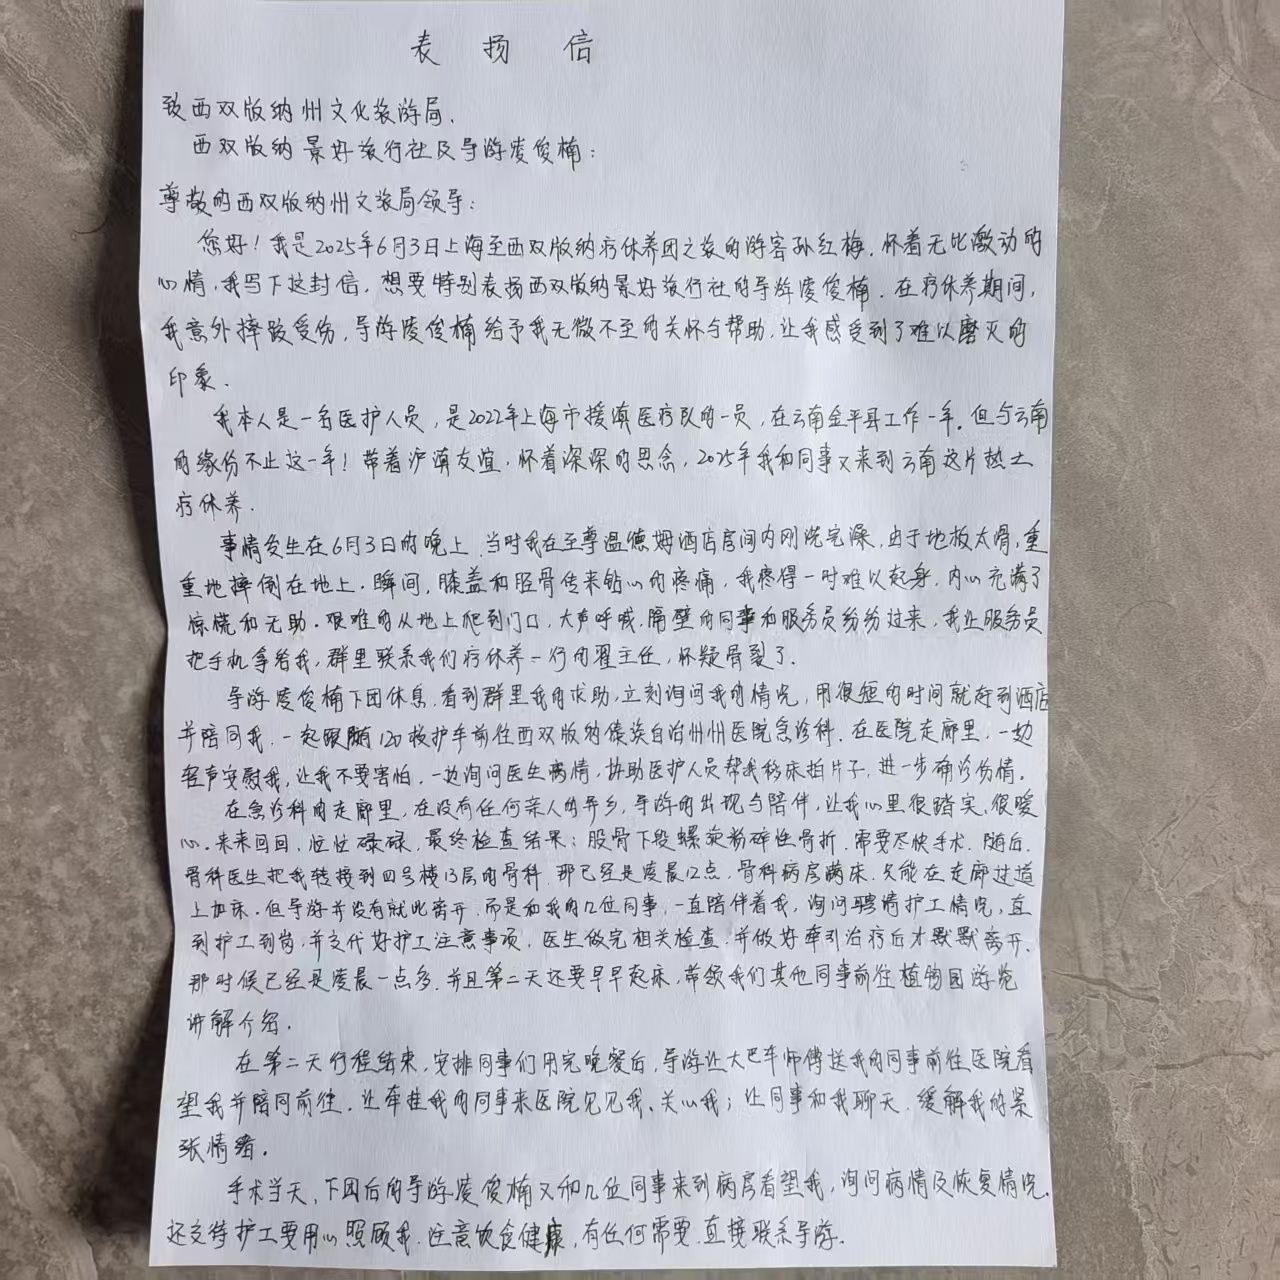 表 扬 信
致西双版纳州文化旅游局.
西双版纳景好旅行社及导游凌俊楠:
尊敬的西双版纳州文旅局领导:
您好!我是2025年6月3日上海至西双版纳疗休养团之旅的游客孙红梅.怀着无比激动的
心情,我写下这封信,想要特别表扬西双版纳景好旅行社的导游凌俊楠.在疗休养期间,
我意外摔跤受伤,导游凌俊楠给予我无微不至的关怀与帮助,让我感受到了难以磨灭的
印象.
我本人是一名医护人员,是2022年上海市援滇医疗队的一员,在云南金平县工作一年.但与云南
的缘份不止这一年!带着沪滇友谊.怀着深深的思念,2025年我和同事又来到云南这片热土
疗休养.
事情发生在6月3日的晚上.当时我在至尊温德姆酒店房间内刚洗完澡.由于地板太滑,重
重地摔倒在地上.瞬间,膝盖和胫骨传来钻心的疼痛,我疼得一时难以起身.内心充满了
惊慌和无助.艰难的从地上爬到门口,大声呼喊.隔壁的同事和服务员纷纷过来,我让服务员
把手机拿给我,群里联系我们疗休养一行的翟主任,怀疑骨裂了.
导游凌俊楠下团休息,看到群里我的求助,立刻询问我的情况,用很短的时间就赶到酒店
并陪同我.一起跟随120救护车前往西双版纳傣族自治州州医院急诊科.在医院走廊里,一边
轻声安慰我,让我不要害怕,一边询问医生病情,协助医护人员帮我移床拍片子,进一步确诊伤情.
在急诊科的走廊里,在没有任何亲人的异乡,导游的出现与陪伴,让我心里很踏实.很暖
心.来来回回,忙忙碌碌,最终检查结果:股骨下段螺旋粉碎性骨折.需要尽快手术.随后.
骨科医生把我转接到四号楼13层的骨科.那已经是凌晨12点.骨科病房满床.只能在走廊过道
上加床.但导游并没有就此离开.而是和我的几位同事,一直陪伴着我,询问聘请护工情况,直
到护工到岗,并交代好护工注意事项,医生做完相关检查.并做好牵引治疗后才默默离开.
那时候已经是凌晨一点多.并且第二天还要早早起床,带领我们其他同事前往植物园游览
讲解介绍.
在第二天行程结束,安排同事们用完晚餐后,导游让大巴车师傅送我的同事前往医院看
望我并陪同前往.让牵挂我的同事来医院见见我、关心我;让同事和我聊天.缓解我的紧
张情绪.
手术当天,下团后的导游凌俊楠又和几位同事来到病房看望我,询问病情及恢复情况.
还交待护工要用心照顾我.注意饮食健康,有任何需要.直接联系导游.